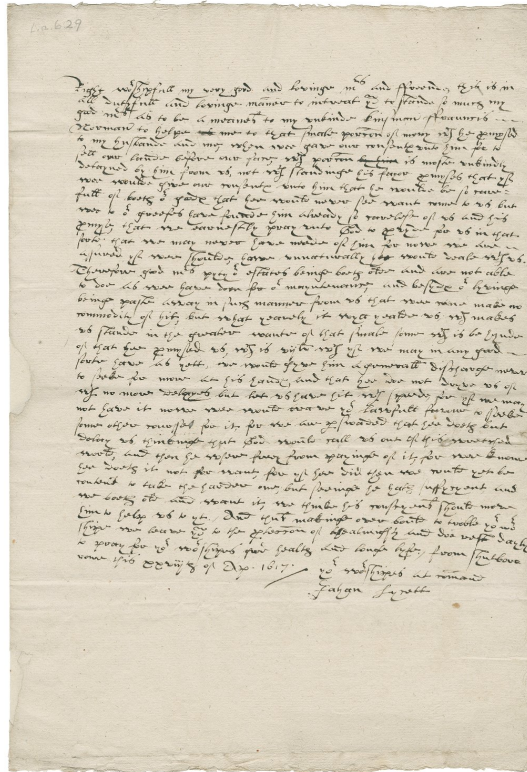 L.a.629
Right wo:shipfull my very good and lovinge mrs and ffreend, this is in
all dutyfull and lovinge maner to intreat yor to stande so much my
good mrs as to be a meanes to my unkinde kinsman ffrauncis
Norman to helpe me to that smale portion of mony wch he promysed
to my husbande and me, when wee gave our consent unto him for to
sell our lande before our faces wch portion is moste unkindly
detayned by him from us, not wth standinge his faier promyses that yf
wee woulde give our consent unto him that he woulde be so care=
full of both or good that hee would never see want come to us but
wee to or greefes have founde him already so carelesse of us and his
promyse that we earnestly pray unto God to provide for us in that
sorte that we may never have neede of him for nowe we are
assured yf wee shoulde have unnaturally he would deale wth us.
Therefore good mrs pytty or estates being both olde and are not able
to doe as wee have don for or maintenance, and besyde or livinge
beinge passed away in such manner from us that wee cane make no
commodity of hit, but what yearely it wyll yealde us wch makes
us stande in the greater wante of that smale some wch is behynde
of that hee promysed us wch is wch yf we may in any good
sorte have as yett, we would give him a generall discharge never
to seeke for more at his hands, and that hee doe not drive us of
wth no more delayes but let us have hit wth speede for yf we may
not have it nowe wee would crave yor lawfull favour to seeke
some other counsell for it, for we are perswaded that hee doth but
delay us thinkinge that God would call us out of this wretched
world, and then he were free from payinge of it, for wee knowe
hee doeth it not for want for yf hee did then we would yet be
content to take the harder one, but seeinge he hath suffytyent and
we both old and want it, we thinke his conscyence should move
him to help us to yt. And thus makinge over bould to troble yor wor
shipe we leave you to the protection of thealmighty and doe rest dayly
to pray for yor worshipes good health and longe lyfe, from
this xxviijth of Ap. 1617.
yor worshipes at comand
Lycett